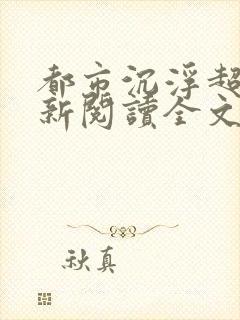 都市沉浮超
新閱讀全文
秋真